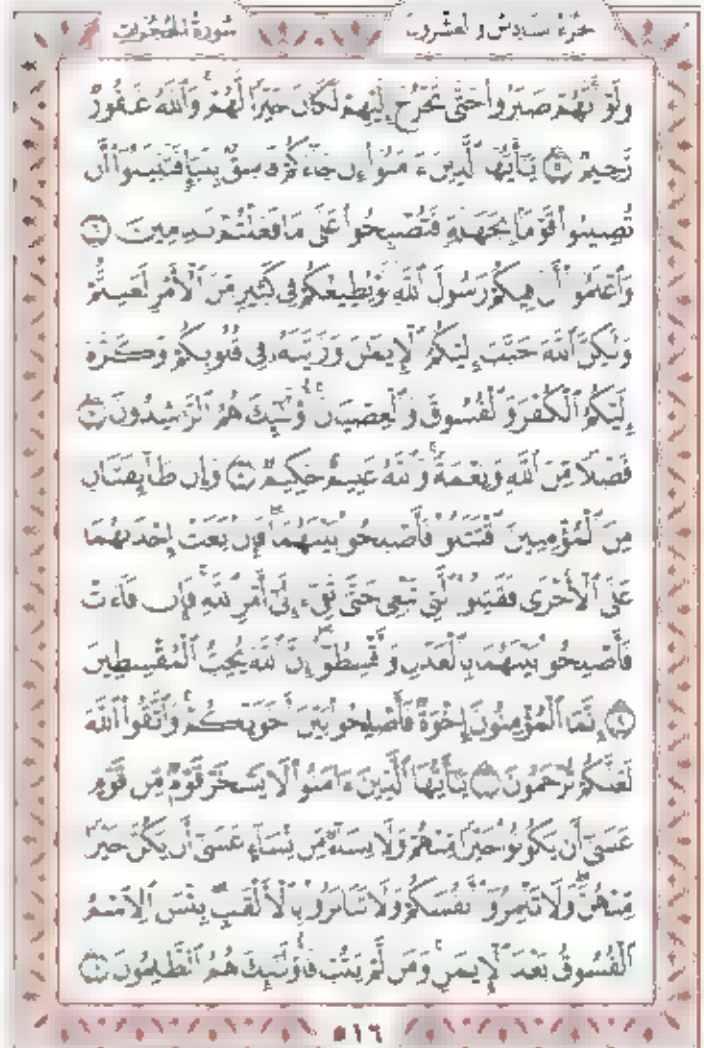 سورة الحجرات الجزء السادس والعشرون
وَلَوْ أَنَّهُمْ صَبَرُوا۟ حَتَّىٰ تَخْرُجَ إِلَيْهِمْ لَكَانَ خَيْرًا لَّهُمْ ۚ وَٱللَّهُ غَفُورٌ
رَّحِيمٌ ٥ يَـٰٓأَيُّهَا ٱلَّذِينَ ءَامَنُوٓا۟ إِن جَآءَكُمْ فَاسِقٌۢ بِنَبَإٍ فَتَبَيَّنُوٓا۟ أَن
تُصِيبُوا۟ قَوْمًۢا بِجَهَـٰلَةٍ فَتُصْبِحُوا۟ عَلَىٰ مَا فَعَلْتُمْ نَـٰدِمِينَ ٦
وَٱعْلَمُوٓا۟ أَنَّ فِيكُمْ رَسُولَ ٱللَّهِ ۚ لَوْ يُطِيعُكُمْ فِى كَثِيرٍ مِّنَ ٱلْأَمْرِ لَعَنِتُّمْ
وَلَـٰكِنَّ ٱللَّهَ حَبَّبَ إِلَيْكُمُ ٱلْإِيمَـٰنَ وَزَيَّنَهُۥ فِى قُلُوبِكُمْ وَكَرَّهَ
إِلَيْكُمُ ٱلْكُفْرَ وَٱلْفُسُوقَ وَٱلْعِصْيَانَ ۚ أُو۟لَـٰٓئِكَ هُمُ ٱلرَّٰشِدُونَ ٧
فَضْلًا مِّنَ ٱللَّهِ وَنِعْمَةً ۚ وَٱللَّهُ عَلِيمٌ حَكِيمٌ ٨ وَإِن طَآئِفَتَانِ
مِنَ ٱلْمُؤْمِنِينَ ٱقْتَتَلُوا۟ فَأَصْلِحُوا۟ بَيْنَهُمَا ۖ فَإِنۢ بَغَتْ إِحْدَىٰهُمَا
عَلَى ٱلْأُخْرَىٰ فَقَـٰتِلُوا۟ ٱلَّتِى تَبْغِى حَتَّىٰ تَفِىٓءَ إِلَىٰٓ أَمْرِ ٱللَّهِ ۚ فَإِن فَآءَتْ
فَأَصْلِحُوا۟ بَيْنَهُمَا بِٱلْعَدْلِ وَأَقْسِطُوٓا۟ ۖ إِنَّ ٱللَّهَ يُحِبُّ ٱلْمُقْسِطِينَ
٩ إِنَّمَا ٱلْمُؤْمِنُونَ إِخْوَةٌ فَأَصْلِحُوا۟ بَيْنَ أَخَوَيْكُمْ ۚ وَٱتَّقُوا۟ ٱللَّهَ
لَعَلَّكُمْ تُرْحَمُونَ ١٠ يَـٰٓأَيُّهَا ٱلَّذِينَ ءَامَنُوا۟ لَا يَسْخَرْ قَوْمٌ مِّن قَوْمٍ
عَسَىٰٓ أَن يَكُونُوا۟ خَيْرًا مِّنْهُمْ وَلَا نِسَآءٌ مِّن نِّسَآءٍ عَسَىٰٓ أَن يَكُنَّ خَيْرًا
مِّنْهُنَّ ۖ وَلَا تَلْمِزُوٓا۟ أَنفُسَكُمْ وَلَا تَنَابَزُوا۟ بِٱلْأَلْقَـٰبِ ۖ بِئْسَ ٱلِٱسْمُ
ٱلْفُسُوقُ بَعْدَ ٱلْإِيمَـٰنِ ۚ وَمَن لَّمْ يَتُبْ فَأُو۟لَـٰٓئِكَ هُمُ ٱلظَّـٰلِمُونَ ١١
٥١٦